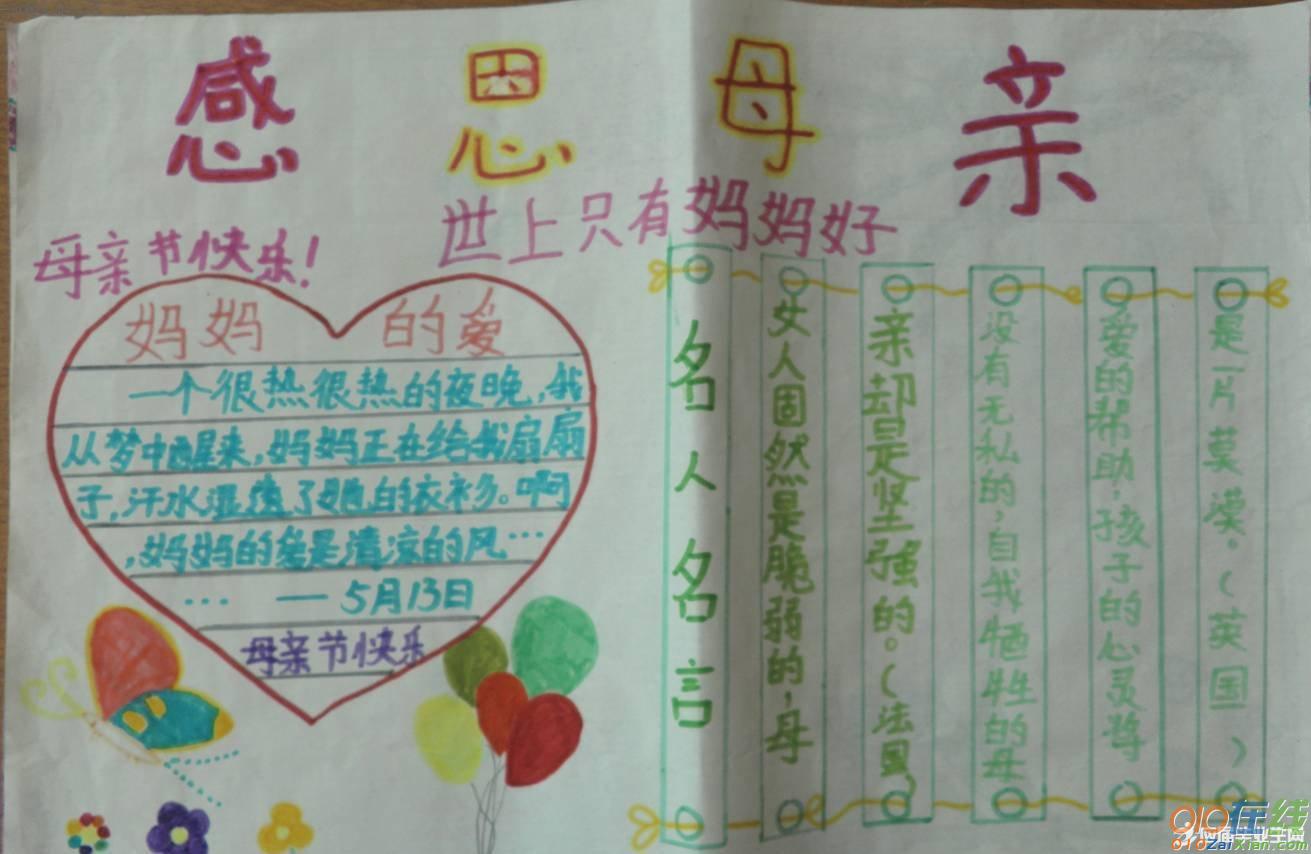 感恩母亲
世上只有妈妈好
母亲节快乐！
妈妈的爱
一个很热很热的夜晚，我
从梦中醒来，妈妈正在给我扇扇
子，汗水湿透了她的衣衫。啊
，妈妈的爱是清凉的风…
… — 5月13日
母亲节快乐
名人名言
女人固然是脆弱的，母
亲却是坚强的。（法国）
没有无私的，自我牺牲的母
爱的帮助，孩子的心灵将
是一片莫漠。（英国）
910在线
910ZaiXian.com